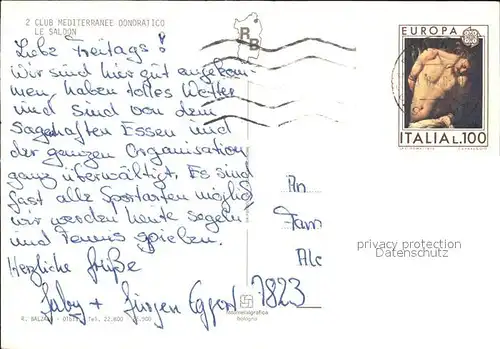 2 CLUB MEDITERRANEE DONORATICO
LE SALOON
Liebe Freitags!
Wir sind hier gut angekom-
men, haben tolles Wetter
und sind von dem
sagenhaften Essen und
der ganzen Organisation
ganz überwältigt. Es sind
fast alle Sportarten möglich
wir werden heute segeln
und Tennis spielen.
Herzliche Grüße
Gaby + Jürgen
1823
RB
EUROPA
ITALIA L.100
An
Fam
privacy protection
Datenschutz
Bologna